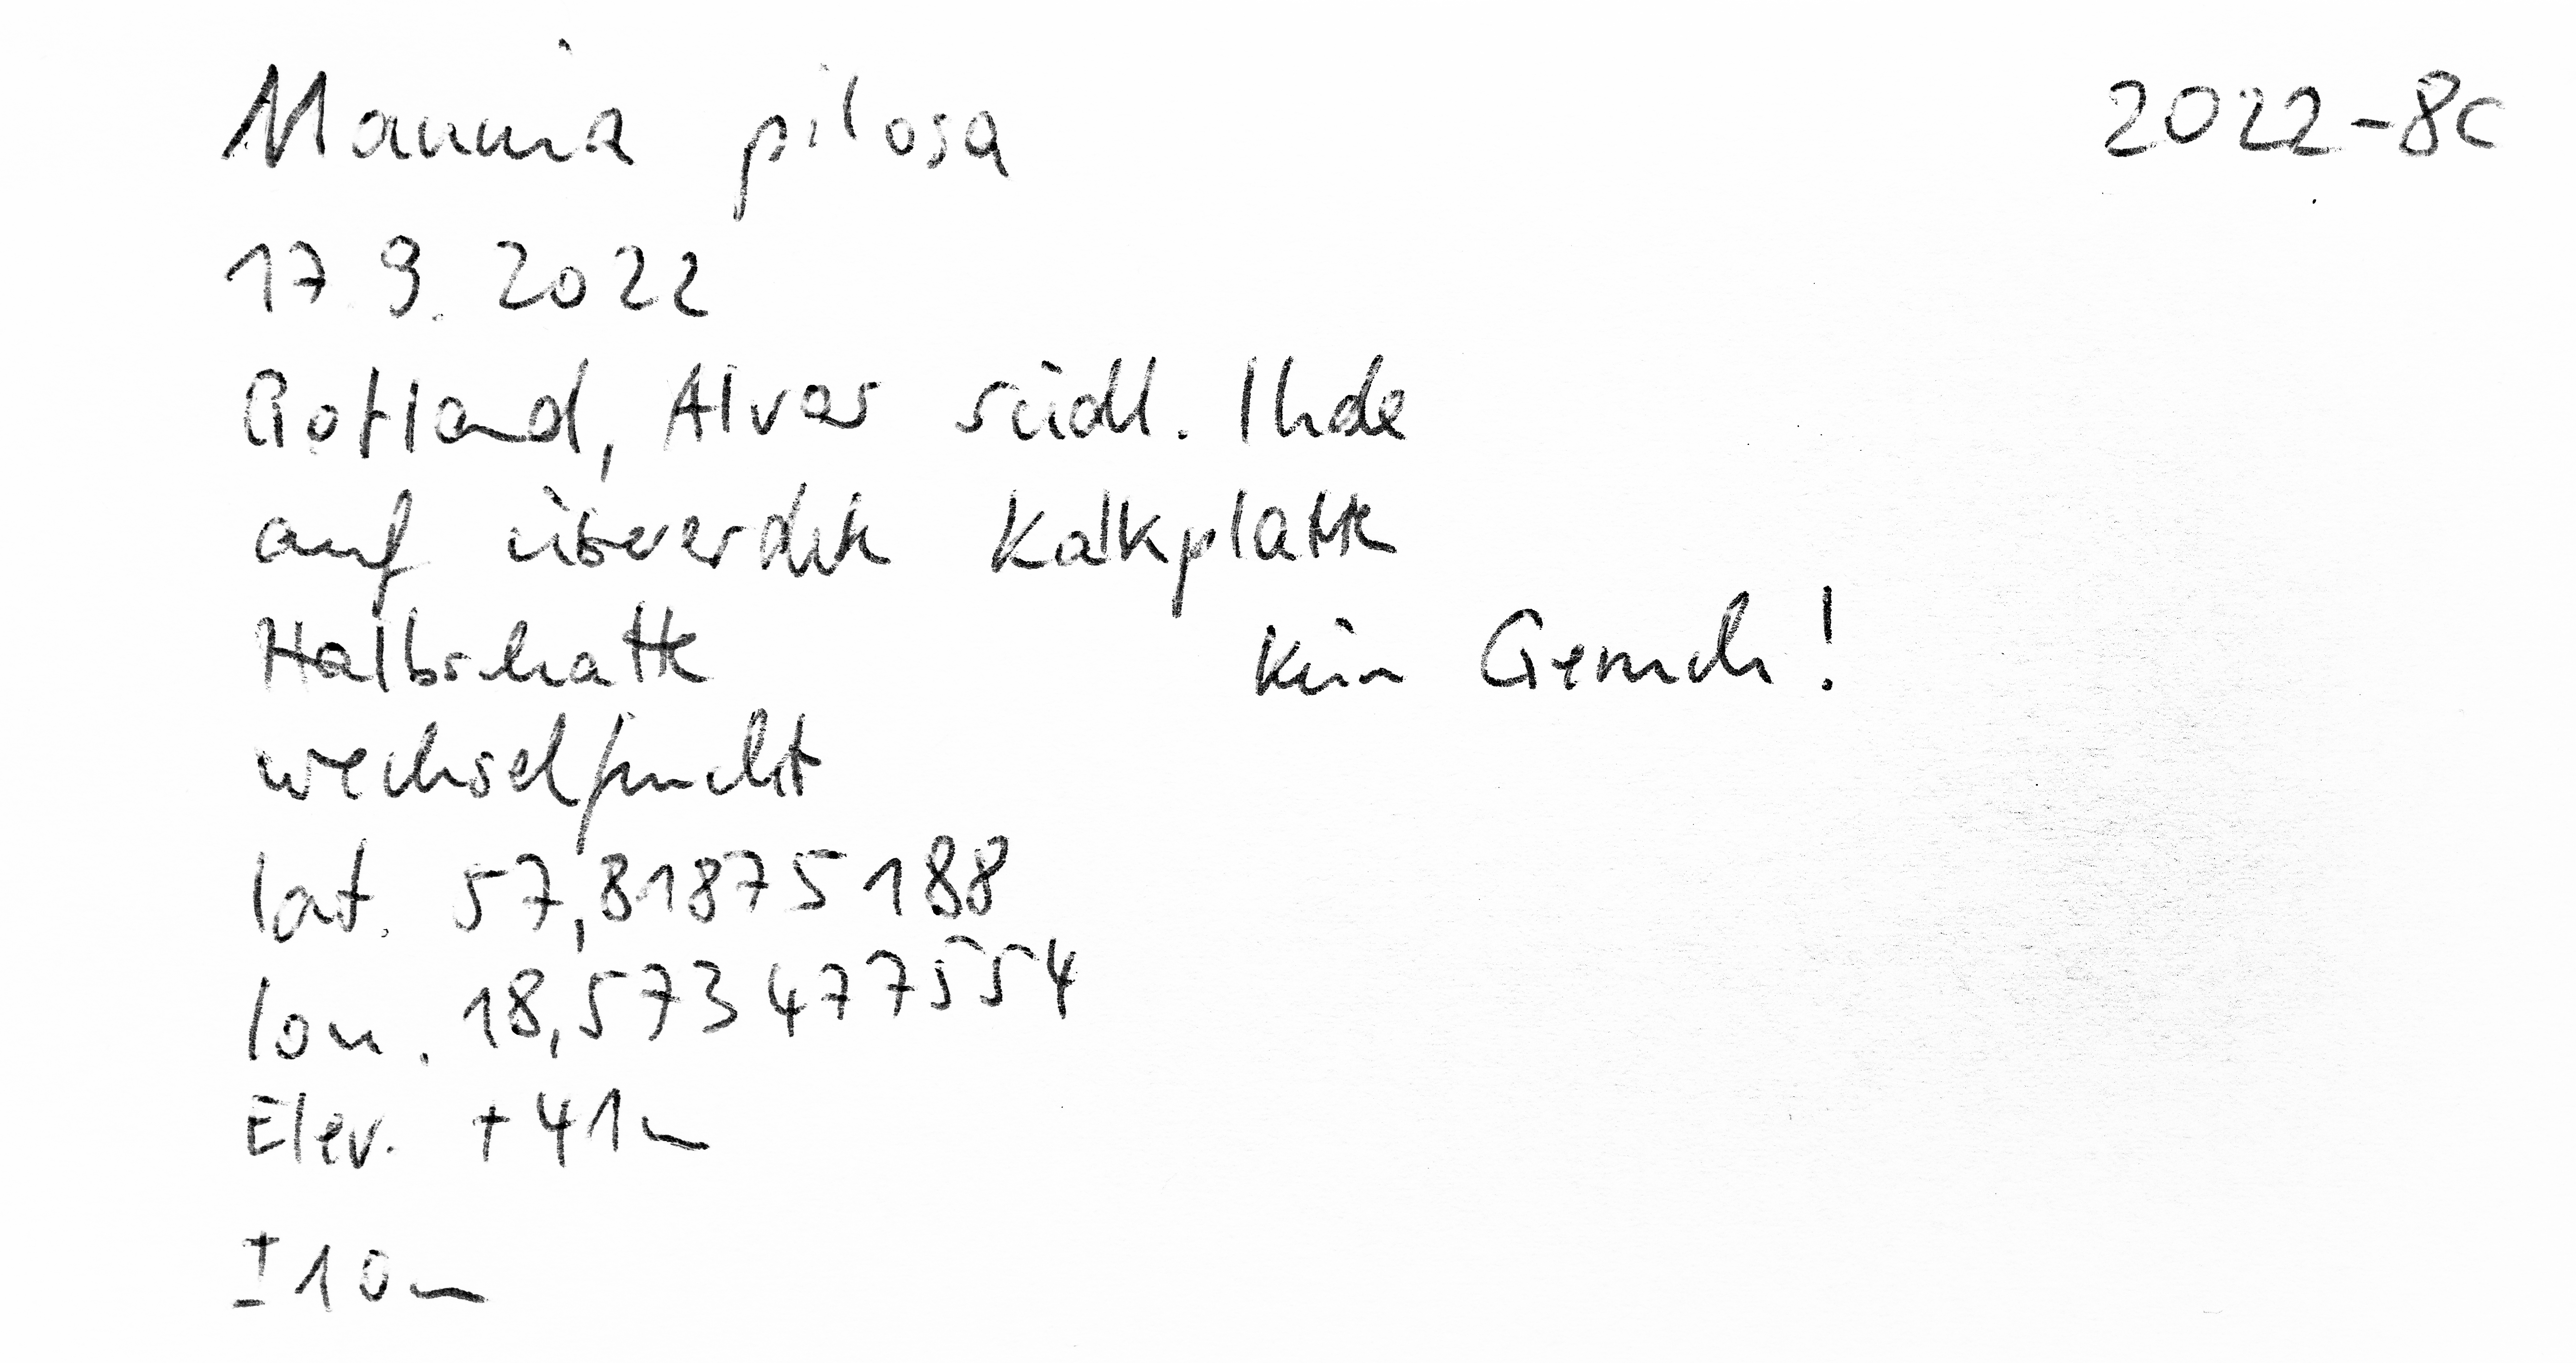 Mannia pilosa 2022-8c
17.9.2022
Gotland, Alvar südl. Ihde
auf übererdete Kalkplatte
Halbschatten kein Geruch!
wechselfeucht
lat. 57,81875188
lon. 18,573477554
Elev. +41m
±10m